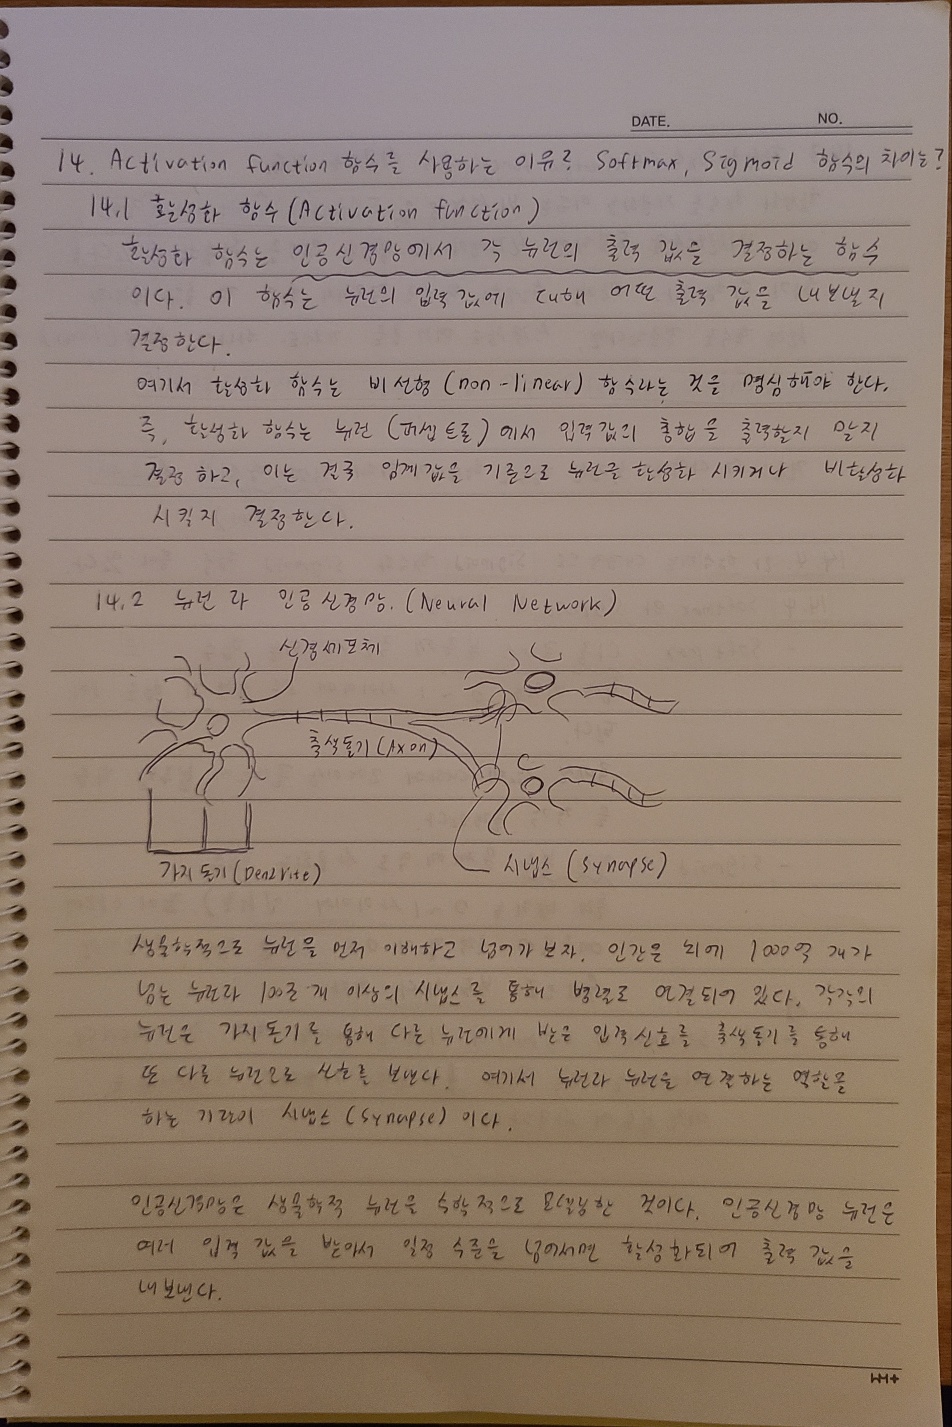 DATE. NO.
14. Activation function 함수를 사용하는 이유? Softmax, Sigmoid 함수의 차이는?
14.1 활성화 함수 (Activation function)
활성화 함수는 인공신경망에서 각 뉴런의 출력 값을 결정하는 함수
이다. 이 함수는 뉴런의 입력값에 대해 어떤 출력 값을 내보낼지
결정한다.
여기서 활성화 함수는 비선형 (non-linear) 함수라는 것을 명심해야 한다.
즉, 활성화 함수는 뉴런 (퍼셉트론)에서 입력값의 총합을 출력할지 말지
결정하고, 이는 결국 임계값을 기준으로 뉴런을 활성화 시키거나 비활성화
시킬지 결정한다.
14.2 뉴런과 인공신경망. (Neural Network)
신경세포체
축색돌기 (Axon)
가지돌기 (Dendrite)
시냅스 (Synapse)
생물학적으로 뉴런을 먼저 이해하고 넘어가 보자. 인간은 뇌에 1000억 개가
넘는 뉴런과 100조 개 이상의 시냅스를 통해 병렬로 연결되어 있다. 각각의
뉴런은 가지돌기를 통해 다른 뉴런에게 받은 입력신호를 축색돌기를 통해
또 다른 뉴런으로 신호를 보낸다. 여기서 뉴런과 뉴런을 연결하는 역할을
하는 기관이 시냅스 (Synapse) 이다.
인공신경망은 생물학적 뉴런을 수학적으로 모델링한 것이다. 인공신경망 뉴런은
여러 입력 값을 받아서 일정 수준을 넘어서면 활성화되어 출력 값을
내보낸다.